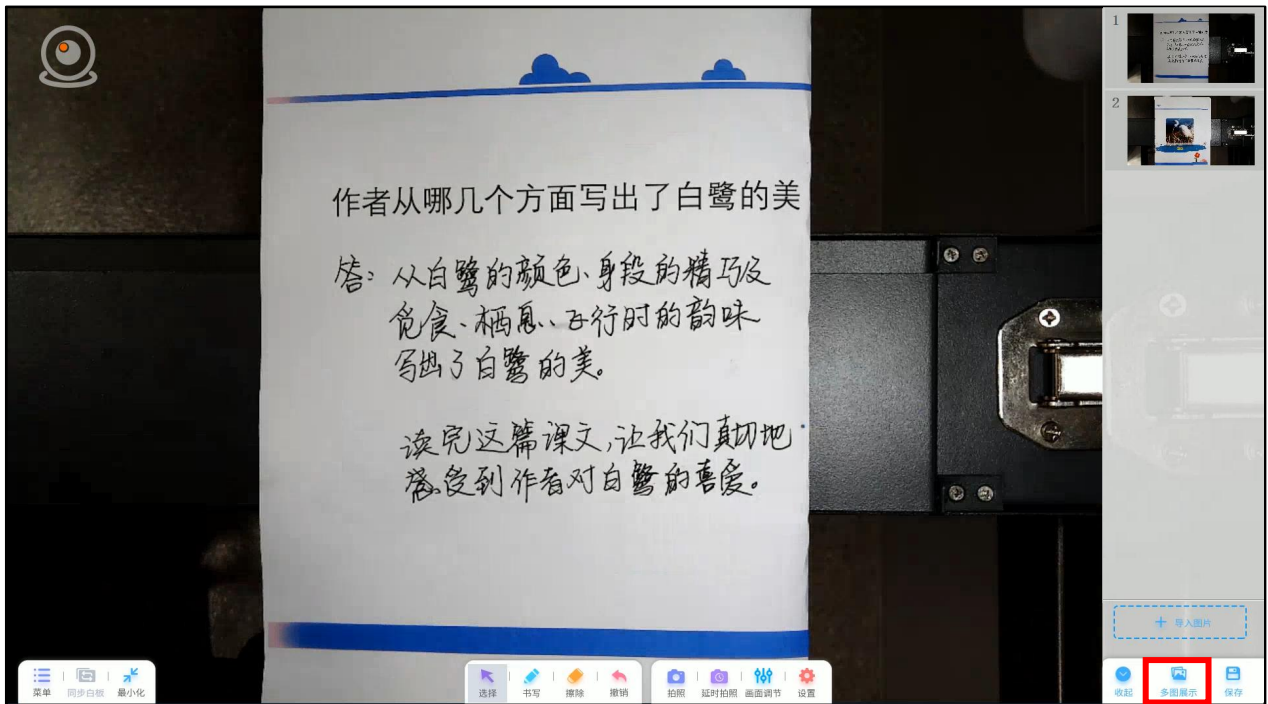 作者从哪几个方面写出了白鹭的美
答：从白鹭的颜色、身段的精巧及
觅食、栖息、飞行时的韵味
写出了白鹭的美。
读完这篇课文,让我们真切地
感受到作者对白鹭的喜爱。
1
2
导入图片
菜单
同步白板
最小化
选择
书写
擦除
撤销
拍照
延时拍照
画面调节
设置
收起
多图展示
保存